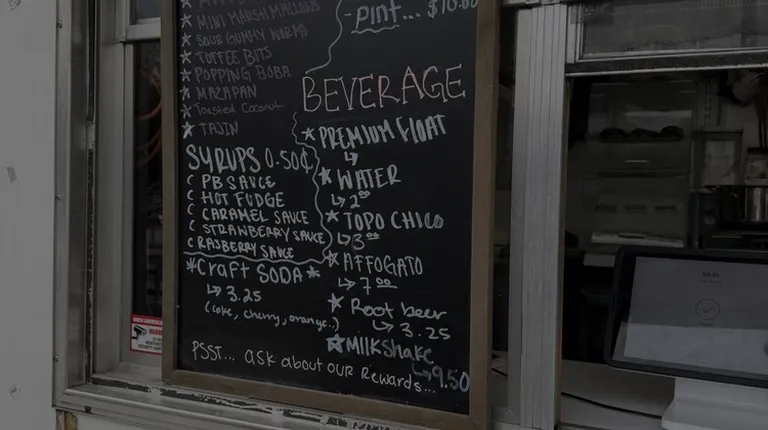 ★ MINI MARSHMALLOWS
★ SOUR GUMMY WORMS
★ TOFFEE BITS
★ POPPING BOBA
★ MAZAPAN
★ Toasted Coconut
★ TAJIN
SYRUPS 0.50¢
PB SAUCE
HOT FUDGE
CARAMEL SAUCE
STRAWBERRY SAUCE
RASBERRY SAUCE
*Craft SODA*
↳ 3.25
(coke, cherry, orange..)
-pint... $10.00
BEVERAGE
★ PREMIUM FLOAT
↳
★ WATER
↳ 2.00
★ TOPO CHICO
↳ 3.00
★ AFFOGATO
↳ 7.00
★ Root beer
↳ 3.25
★ MILKSHAKE
↳ 9.50
PSST... ask about our Rewards...